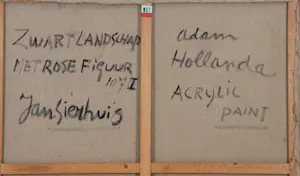 ZWART LANDSCHAP
MET ROSE FIGUUR
Jan Sierhuis
adam
Hollanda
ACRYLIC
PAINT